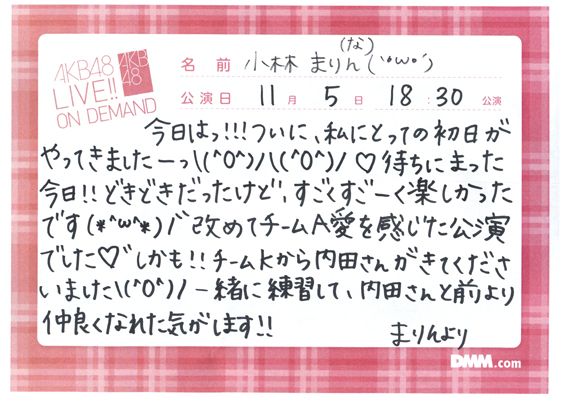 AKB48
LIVE!!
ON DEMAND
AKB
48
名前 小林 まりん(な)(`・ω・´)
公演日 11月 5日 18:30 公演
今日はっ!!!ついに、私にとっての初日が
やってきましたーっ\(^O^)/\(^O^)/♡待ちにまった
今日!!どきどきだったけど、すごくすごーく楽しかった
です(*^ω^*)ノ゛改めてチームA愛を感じた公演
でした♡゛しかも!!チームKから内田さんがきてくださ
いました\(^O^)/一緒に練習して、内田さんと前より
仲良くなれた気がします!!
まりんより
DMM.com